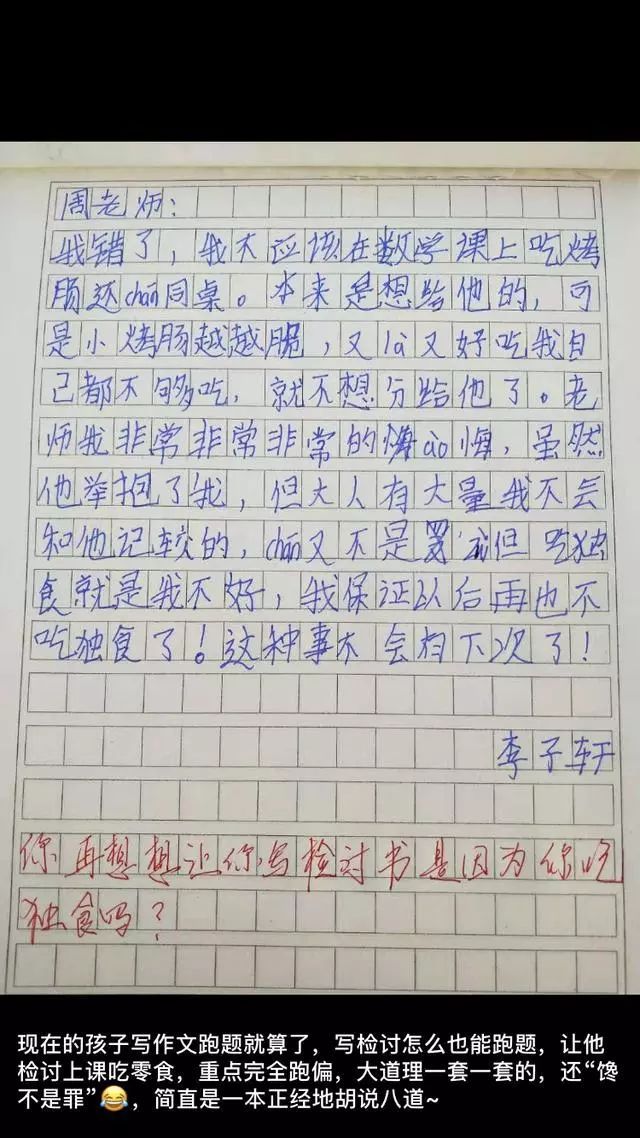 周老师：
我错了，我不应该在数学课上吃烤
肠还chán同桌。本来是想给他的，可
是小烤肠越越脆，又là又好吃我自
己都不够吃，就不想分给他了。老
师我非常非常非常的悔ào悔，虽然
他举抱了我，但大人有大量我不会
和他记较的，chán又不是罪 但吃独
食就是我不好，我保证以后再也不
吃独食了！这种事不会有下次了！
李子轩
你再想想让你写检讨书是因为你吃
独食吗？
现在的孩子写作文跑题就算了，写检讨怎么也能跑题，让他
检讨上课吃零食，重点完全跑偏，大道理一套一套的，还“馋
不是罪”😂，简直是一本正经地胡说八道~